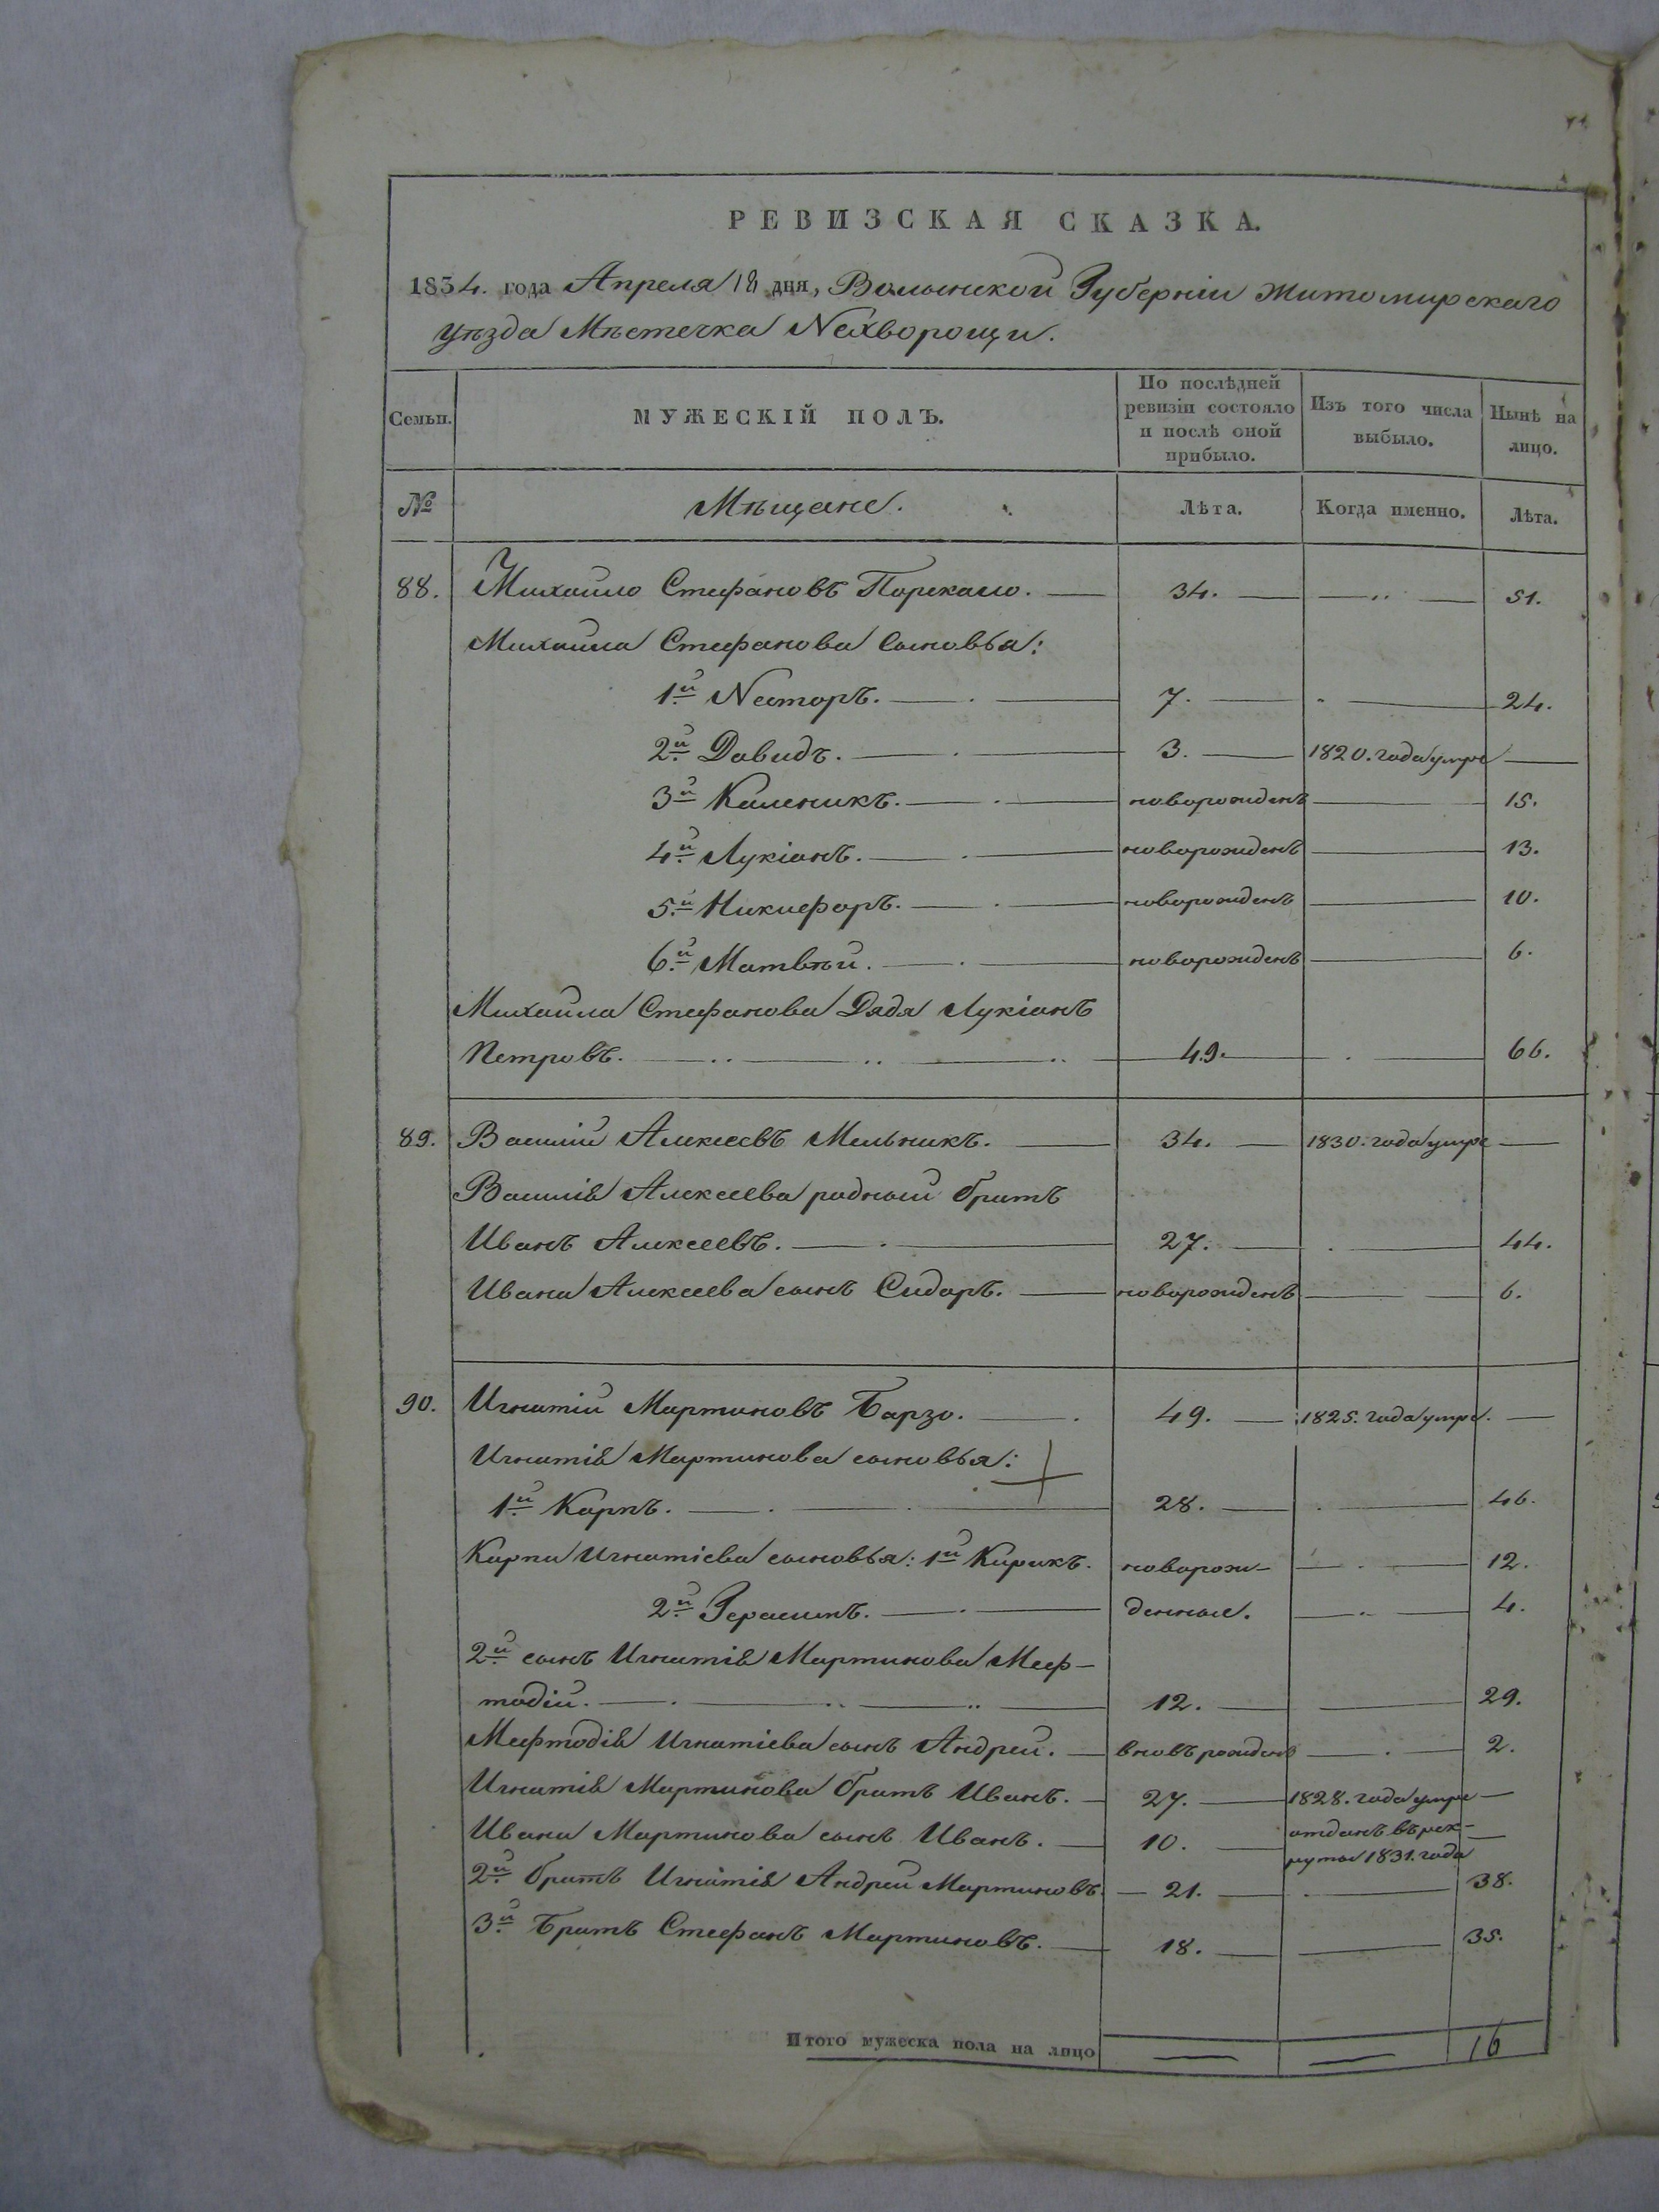 РЕВИЗСКАЯ СКАЗКА.
1834. года Апреля 18 дня, Волынской Губерніи Житомирскаго
уѣзда Мѣстечка Нехворощи.
Семьи. МУЖЕСКІЙ ПОЛЪ. По послѣдней ревизіи состояло и послѣ оной прибыло. Изъ того числа выбыло. Нынѣ на лицо.
№ Мѣщане. Лѣта. Когда именно. Лѣта.
88. Михайло Стефановъ 34. 51.
Михайла Стефанова сыновья:
1й Несторъ. 7. 24.
2й Давидъ. 3. 1820. года умре
3й Каленикъ. новорожденъ 15.
4й Лукіанъ. новорожденъ 13.
5й Никифоръ. новорожденъ 10.
6й Матвѣй. новорожденъ 6.
Михайла Стефанова Дядя Лукіанъ
Петровъ. 49. 66.
89. Василій Алексеевъ Мельникъ. 34. 1830. года умре
Василія Алексеева родный братъ
Иванъ Алексеевъ. 27. 44.
Ивана Алексеева сынъ Сидоръ. новорожденъ 6.
90. Игнатій Мартиновъ Барзо. 49. 1825. года умре.
Игнатія Мартинова сыновья:
1й Карпъ. 28. 46.
Карпа Игнатіева сыновья: 1й Кирикъ. новорож- 12.
2й Герасимъ. денные. 4.
2й сынъ Игнатія Мартинова Меф-
тодій. 12. 29.
Мефтодія Игнатіева сынъ Андрей. вновь рожденъ 2.
Игнатія Мартинова братъ Иванъ. 27. 1828. года умре
Ивана Мартинова сынъ Иванъ. 10. отданъ въ рек-
руты 1831. года
2й братъ Игнатія Андрей Мартиновъ. 21. 38.
3й Братъ Стефанъ Мартиновъ. 18. 35.
Итого мужеска пола на лицо 16